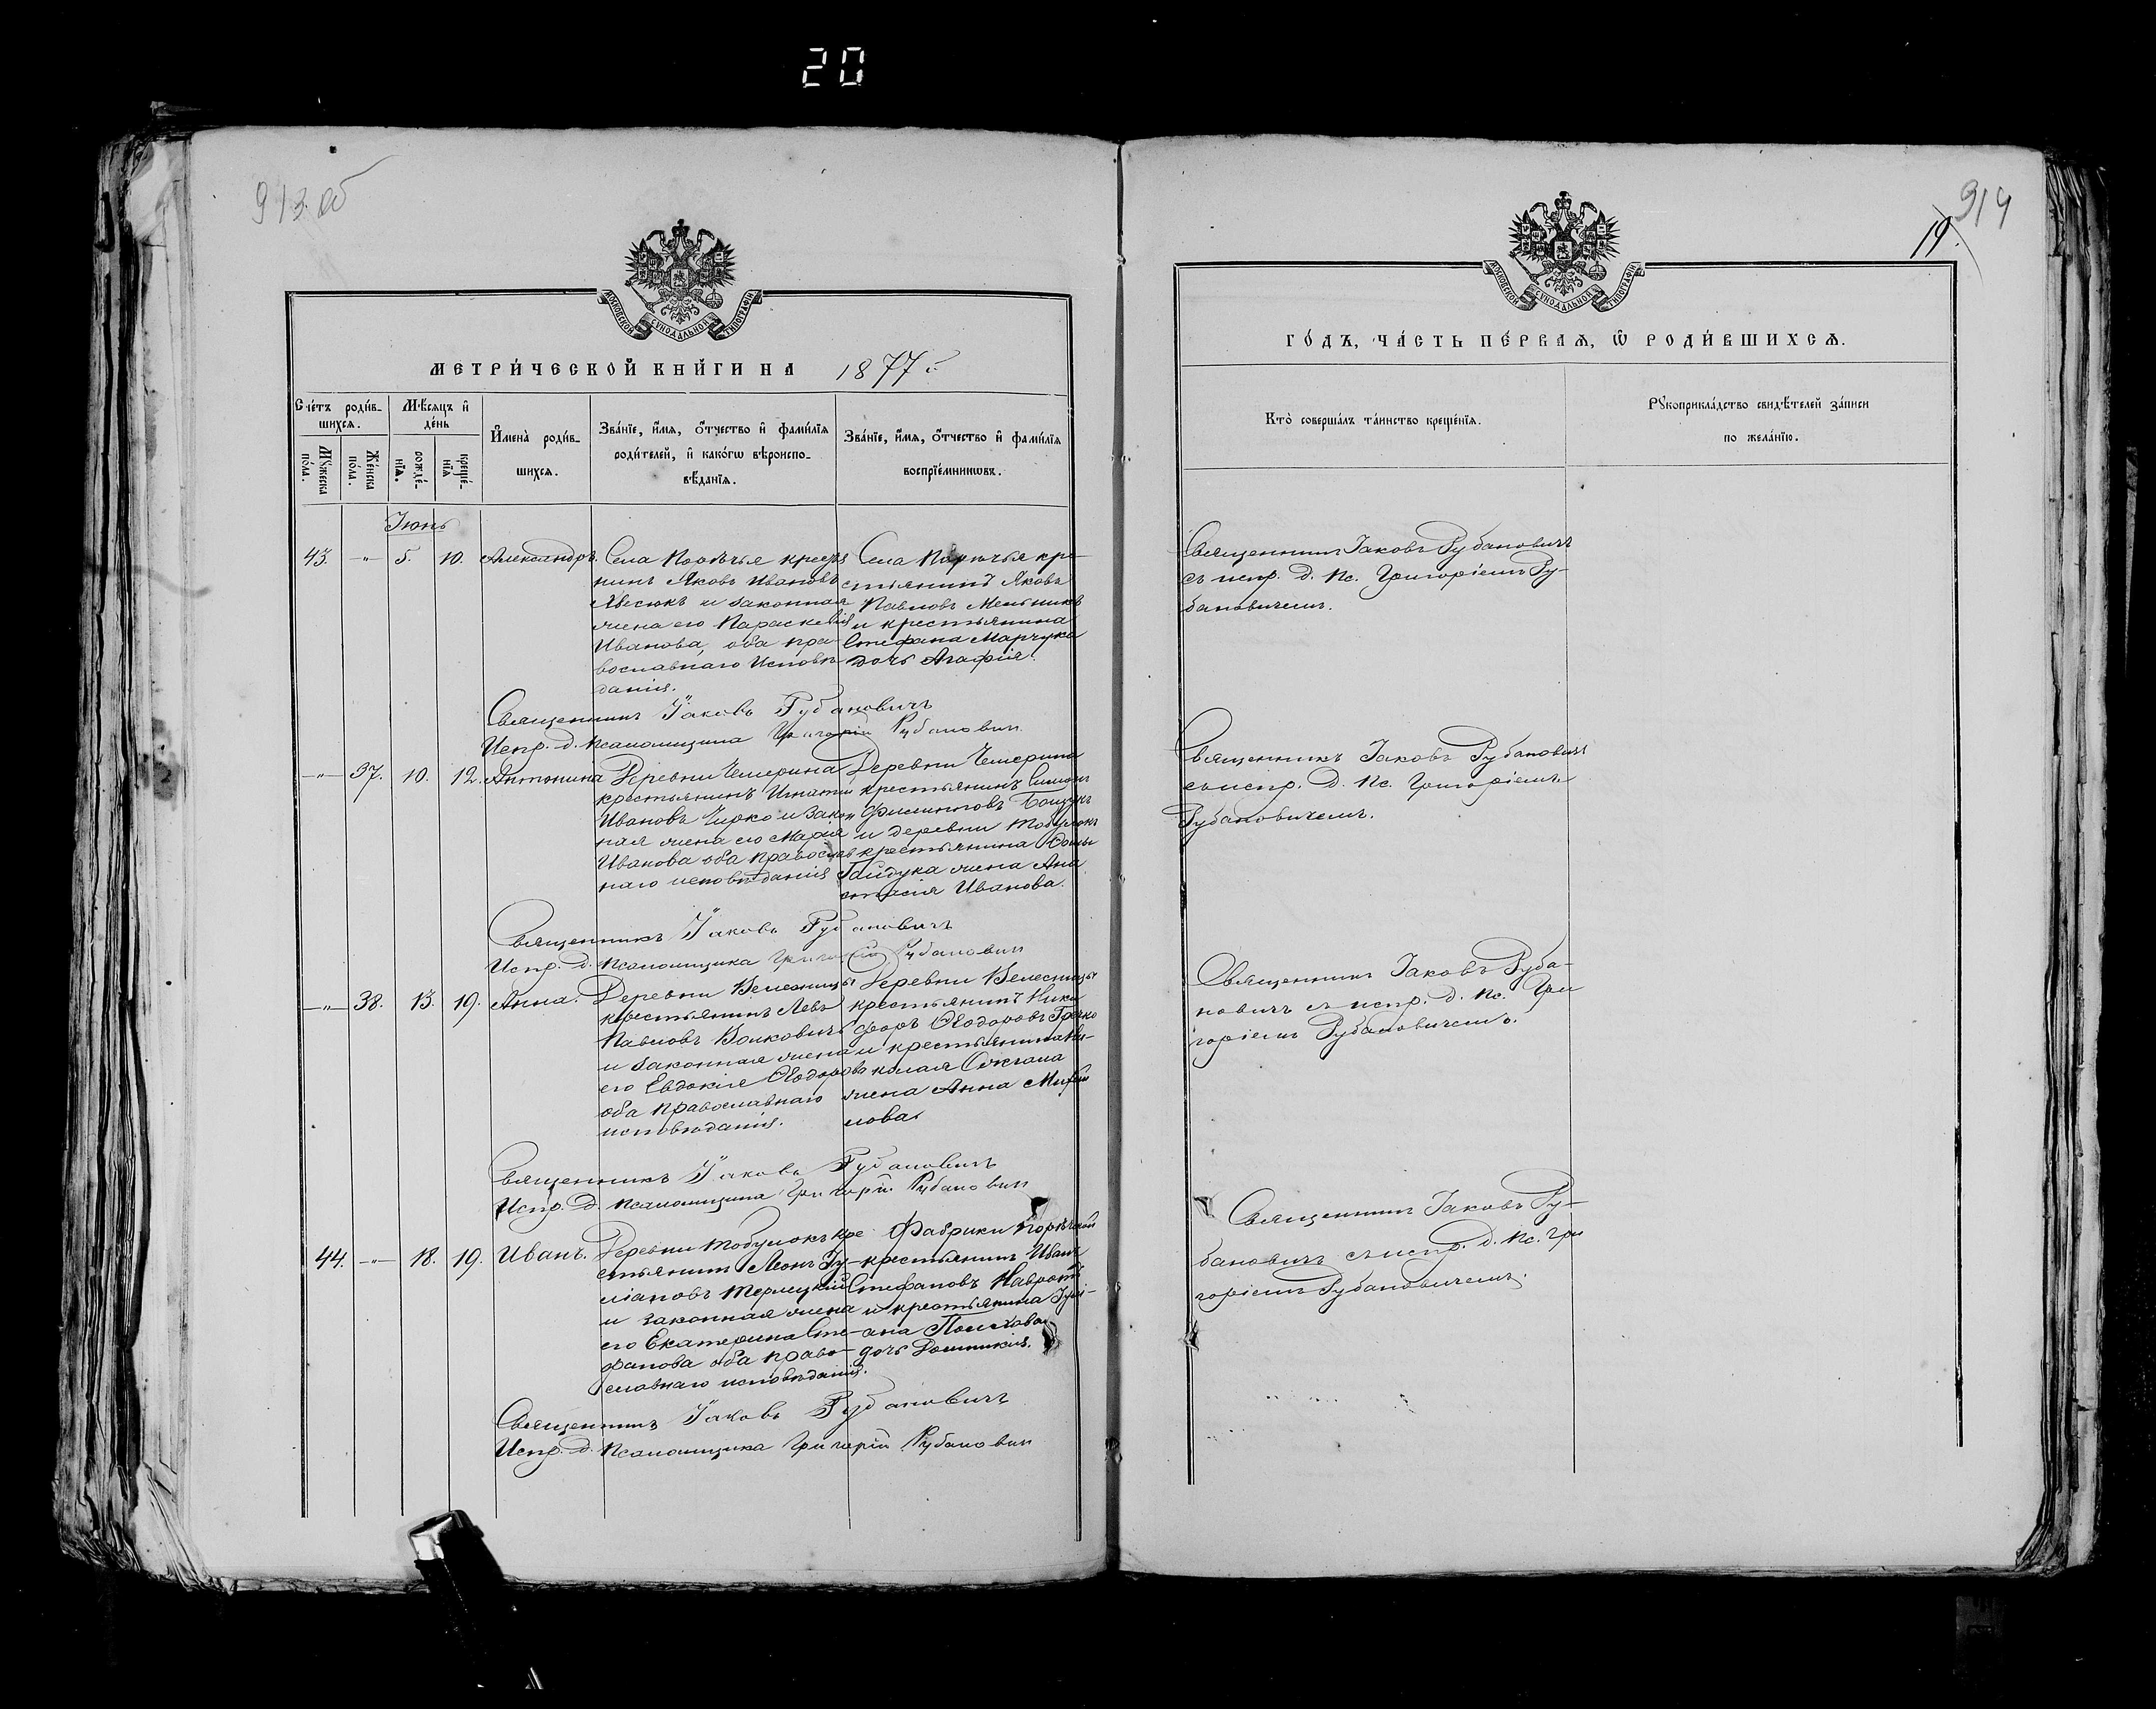 20
913 об
914
19.
МОСКОВСКОЙ СѴНОДАЛЬНОЙ ТИПОГРАФІИ
МЕТРИ́ЧЕСКОЙ КНИ́ГИ НА 1877 г.
Сче́тъ роди́в-
шихсѧ.
Мꙋ́жеска
по́ла.
Же́нска
по́ла.
Мѣ́сѧцъ и҆
де́нь
рожде́-
нїѧ.
креще́-
нїѧ
И҆мена̀ роди́в-
шихсѧ.
Зва́нїе, и҆́мѧ, ѻ҆́тчество и҆ фами́лїѧ
роди́телей, и҆ како́гѡ вѣроиспо-
вѣ́данїѧ.
Зва́нїе, и҆́мѧ, ѻ҆́тчество и҆ фами́лїѧ
воспрїе́мникѡвъ.
Іюнь
43. -"- 5. 10. Александръ.
Села Порѣчья крестья
нинъ Яковъ Ивановъ
и законная
жена его Параскевія
Иванова, оба пра-
вославнаго исповѣ
данія.
Села Порѣчья кре-
стьянинъ Яковъ
Павловъ Мельникъ
и крестьянина
Стефана Марчука
дочь Агафія.
Священникъ Іаковъ Рубановичъ
Испр. д. Псаломщика Григорій Рубанович
-"- 37. 10. 12. Антонина
Деревни Чемерина
крестьянинъ Игнатій
Ивановъ Чирко и закон
ная жена его Марія
Иванова оба православ
наго исповѣданія
Деревни Чемерина
крестьянинъ Симонъ
и деревни Тобулокъ
крестьянина Ѳомы
Гайдука жена Ана
стасія Иванова.
Священникъ Іаковъ Рубановичъ
Испр. д. Псаломщика Григорій Рубанович
-"- 38. 13. 19. Анна.
Деревни Велесницы
крестьянинъ Левъ
Павловъ Волковичъ
и законная жена
его Евдокія Ѳеодоров
оба православнаго
исповѣданія.
Деревни Велесницы
крестьянинъ Ники
форъ Ѳеодоровъ Гречко
и крестьянина Ни-
колая
жена Анна Михай
лова
Священникъ Іаковъ Рубановичъ
Испр. д. Псаломщика Григорій Рубанович
44. -"- 18. 19. Иванъ.
Деревни Тобулокъ кре
стьянинъ Леонъ Іу-
ліановъ Терлецкій
и законная жена
его Екатерина Сте-
фанова оба право-
славнаго исповѣданія.
Фабрики Порѣчской
крестьянинъ Иванъ
Стефановъ
и крестьянина Іулі-
ана
дочь Домникія.
Священникъ Іаковъ Рубановичъ
Испр. д. Псаломщика Григорій Рубанович
МОСКОВСКОЙ СѴНОДАЛЬНОЙ ТИПОГРАФІИ
ГО́ДЪ, ЧА́СТЬ ПЕ́РВАѦ, Ѡ҆ РОДИ́ВШИХСѦ.
Кто̀ соверша́лъ та́инство креще́нїѧ.
Рꙋкоприкла́дство свидѣ́телей за́писи
по жела́нїю.
Священникъ Іаковъ Рубановичъ
съ испр. д. Пс. Григоріемъ Ру-
бановичемъ.
Священникъ Іаковъ Рубановичъ
съ испр. Д. Пс. Григоріемъ
Рубановичемъ.
Священникъ Іаковъ Руба-
новичъ съ испр. д. Пс. Гри
горіемъ Рубановичемъ.
Священникъ Іаковъ Ру-
бановичъ съ испр. д. Пс. Гри
горіемъ Рубановичемъ.